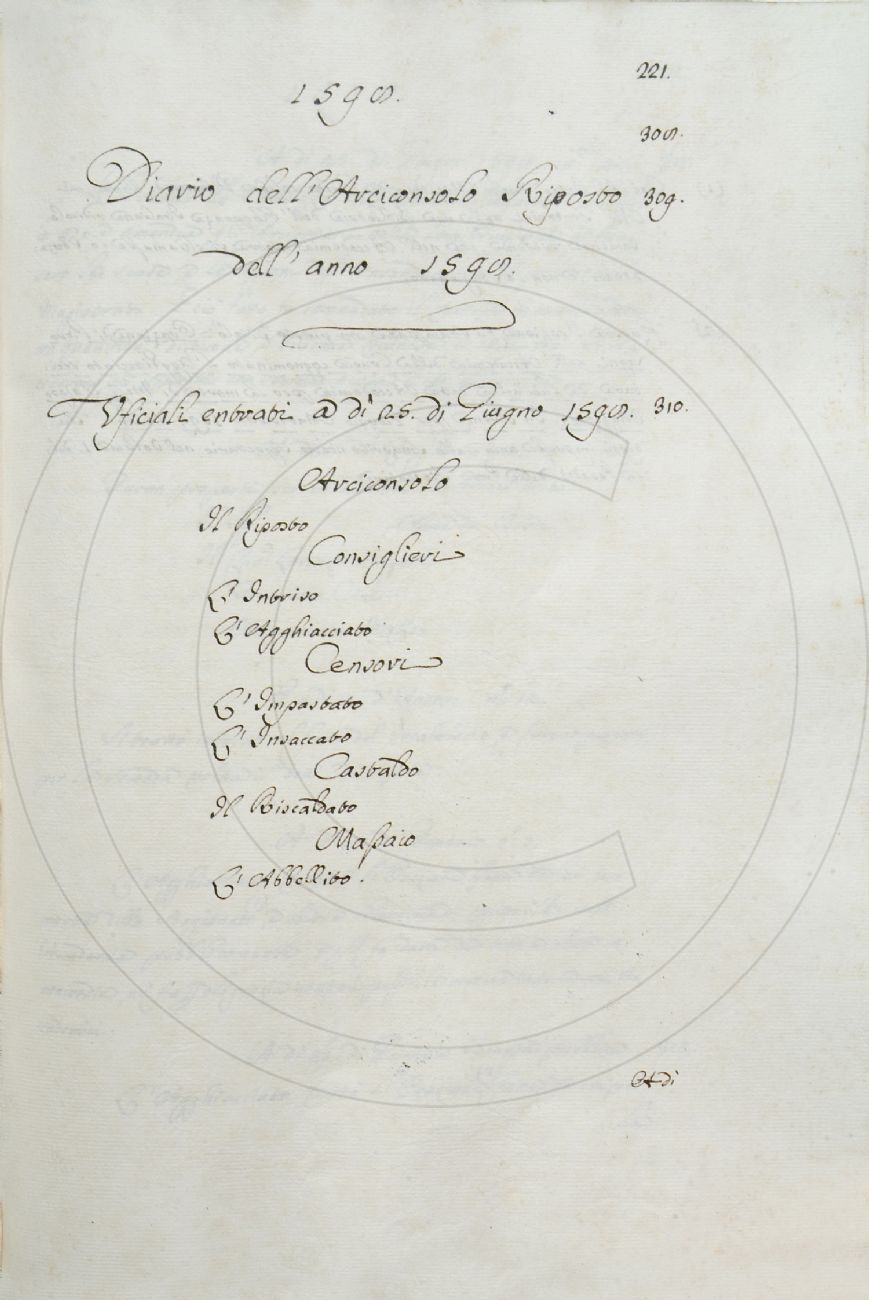 221.
1598.
308.
Diario dell'Arciconsolo Riposto 309.
dell'anno 1598.
Vficiali entrati a dì 25. di Giugno 1598. 310.
Arciconsolo
Il Riposto
Consiglieri
L'Intriso
L'Agghiacciato
Censori
L'Impastato
L'Insaccato
Castaldo
Il Riscaldato
Massaio
L'Abbellito.
A di